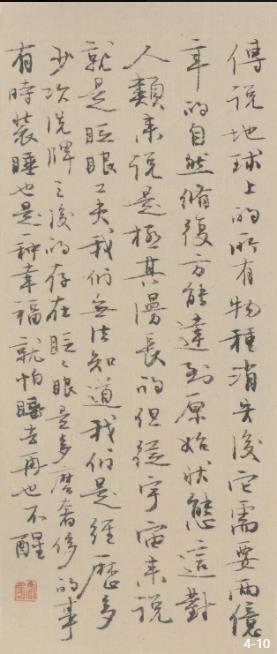 傳说地球上的所有物種消失後它需要兩億
年的自然脩復方能達到原始状態這對
人類来说是極其漫長的但從宇宙来说
就是眨眼工夫我們無法知道我們是经歷多
少次洗牌之後的存在眨眨眼是多麽奢侈的事
有時装睡也是种幸福就怕睡去再也不醒
4-10